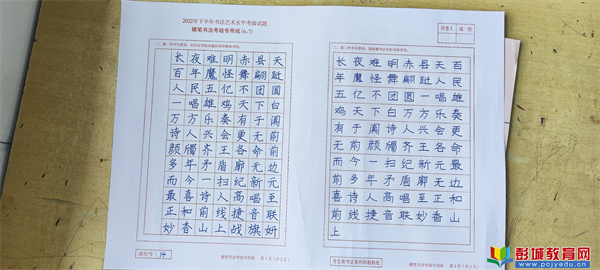 2022年下半年书法艺术水平考级试题
硬笔书法考级专用纸(6-7)
长夜难明赤县天
百年魔怪舞翩跹
人民五亿不团圆
一唱雄鸡天下白
万方乐奏有于阗
诗人兴会更无前
颜斶齐王各命前
多年矛盾廓无边
而今一扫纪新元
最喜诗人高唱至
正和前线捷音联
妙香山上战旗妍
座位号 14
评卷人
长夜难明赤县天百
年魔怪舞翩跹人民
五亿不团圆一唱雄
鸡天下白万方乐奏
有于阗诗人兴会更
无前颜斶齐王各命
而今一扫纪新元最
前多年矛盾廓无边
喜诗人高唱至正和
前线捷音联妙香山
上
彭城教育网
www.pcjyedu.cn